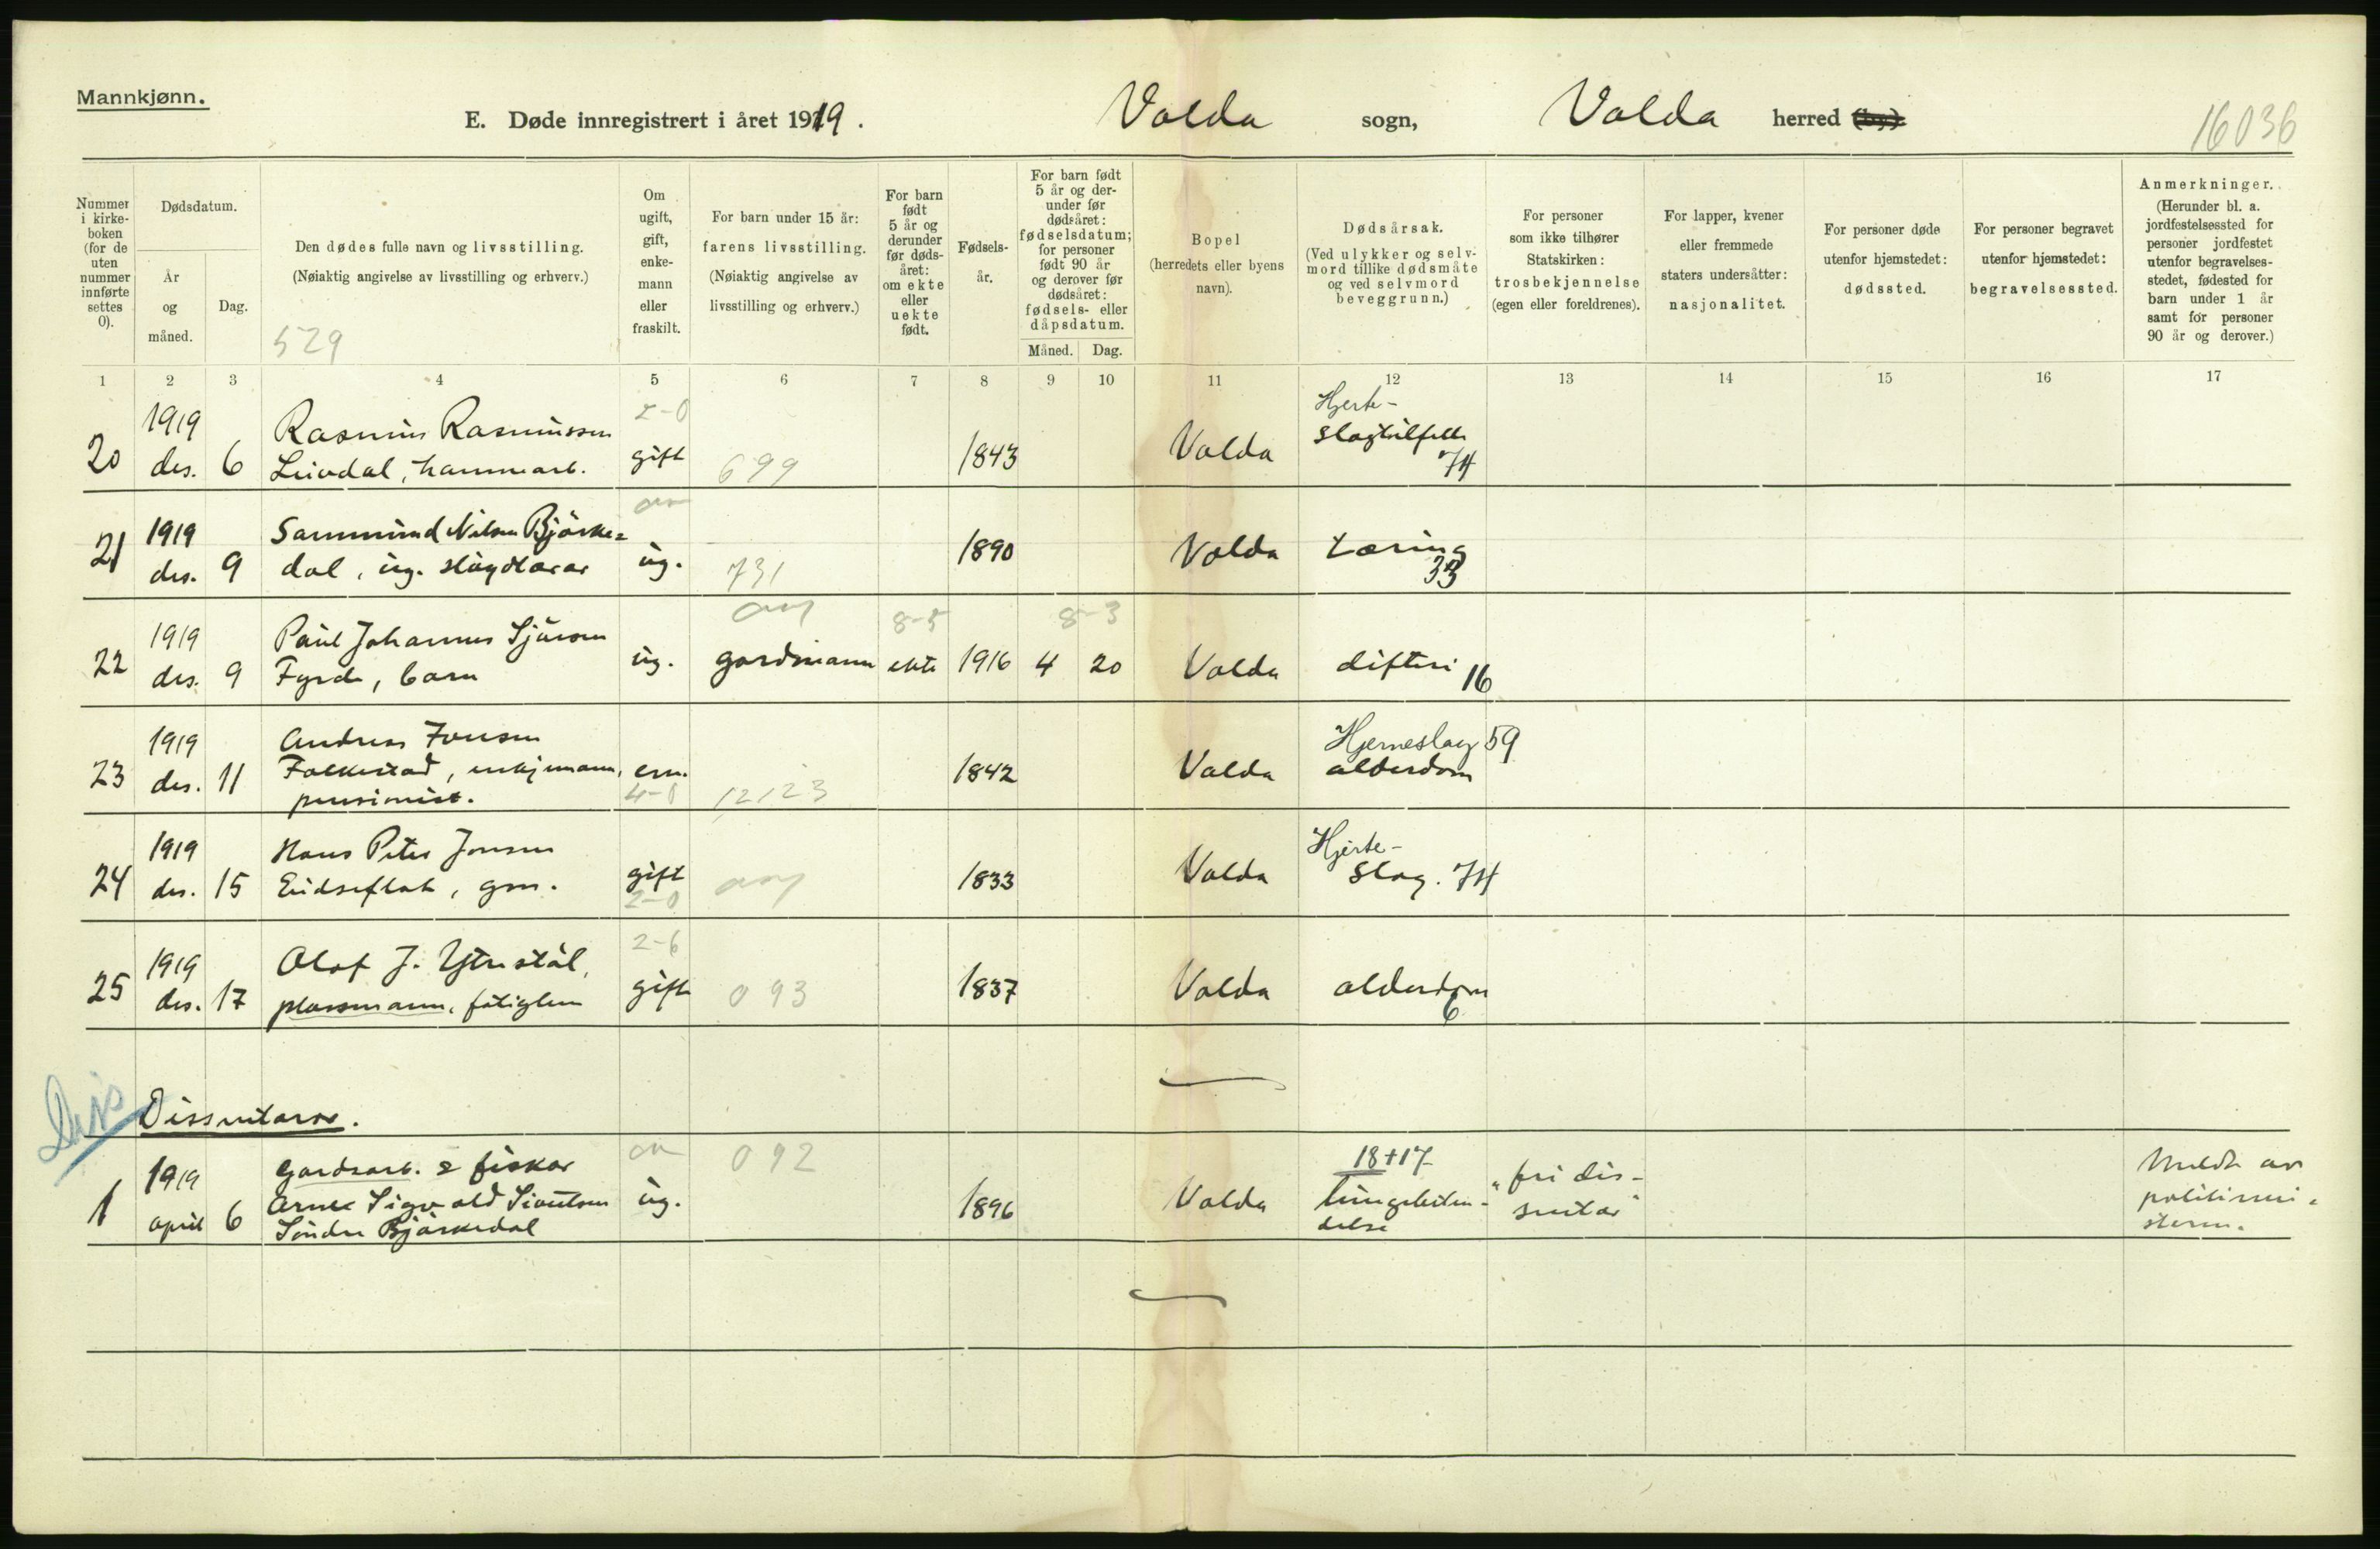 Mannkjønn.
E. Døde innregistrert i året 1919. Volda sogn, Volda herred (by).
16036
Nummer i kirke-boken (for de uten nummer innførte settes 0).
Dødsdatum.
År og måned.
Dag.
Den dødes fulle navn og livsstilling.
(Nøiaktig angivelse av livsstilling og erhverv.)
529
Om ugift, gift, enke-mann eller fraskilt.
For barn under 15 år: farens livsstilling.
(Nøiaktig angivelse av livsstilling og erhverv.)
For barn født 5 år og derunder før døds-året: om ekte eller uekte født.
Fødsels-år.
For barn født 5 år og der-under før dødsåret: fødselsdatum; for personer født 90 år og derover før dødsåret: fødsels- eller dåpsdatum.
Måned. Dag.
Bopel
(herredets eller byens navn).
Dødsårsak.
(Ved ulykker og selv-mord tillike dødsmåte og ved selvmord beveggrunn.)
For personer som ikke tilhører Statskirken: trosbekjennelse (egen eller foreldrenes).
For lapper, kvener eller fremmede staters undersåtter: nasjonalitet.
For personer døde utenfor hjemstedet: dødssted.
For personer begravet utenfor hjemstedet: begravelsessted.
Anmerkninger.
(Herunder bl. a. jordfestelsessted for personer jordfestet utenfor begravelses-stedet, fødested for barn under 1 år samt for personer 90 år og derover.)
1 2 3 4 5 6 7 8 9 10 11 12 13 14 15 16 17
1919 Rasmus Rasmussen 2-0 Hjerte-
20 des. 6 Leivdal, gift 699 1843 Volda slagtilfelle 74
1919 Sammund Nilsen Bjørke=
21 des. 9 dal, ug. sløydlærar ug. 731 1890 Volda tæring 33
1919 Paul Johannes Sjursen 8-5 8-3
22 des. 9 Fyrde, barn ug. gardmann ekte 1916 4 20 Volda difteri 16
1919 Andreas Jonsen Hjerneslag 59
23 des. 11 Folkestad, enkjemann, em. 1842 Volda alderdom
pensionist. 4-0 12123
1919 Hans Peter Jonsen Hjerte-
24 des. 15 Eidseflot, gm. gift 2-0 1833 Volda slag. 74
1919 Olaf J. Ytrestøl, 2-6
25 des. 17 plassmann, fatiglem gift 093 1837 Volda alderdom 6
Diss
Dissentarar.
1919 Gardsarb. & fiskar 092 18+17 "fri dis- Meldt av
1 april 6 Arne Sigvald Sivertsen ug. 1896 Volda lungebeten- sentar" politimei-
Søndre Bjørkedal delse steren.